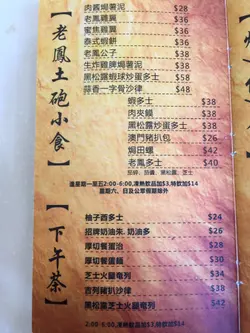 【老鳳土砲小食】
肉醬焗薯泥 $28
老鳳雞翼 $36
蜜焦雞翼 $36
泰式蝦餅 $36
老鳳公子 $38
生炸雞脾焗薯泥 $58
黑松露蝦球炒蛋多士 $58
蒜香一字骨沙律 $48
蝦多士 $38
肉夾饃 $38
黑松露炒蛋多士 $38
澳門豬扒包 $38
焗田螺 $42
老鳳多士 $40
逢星期一至五2:00-6:00,凍熱飲品加$3,特飲加$14
星期六、日及公眾假期除外
【下午茶】
柚子西多士 $24
招牌奶油朱. 奶油多 $26
厚切餐蛋治 $28
厚切餐蛋麵 $30
芝士火腿奄列 $34
吉列豬扒沙律 $38
黑松露芝士火腿奄列 $42
2:00-6:00,凍熱飲品加$3,特飲加$14